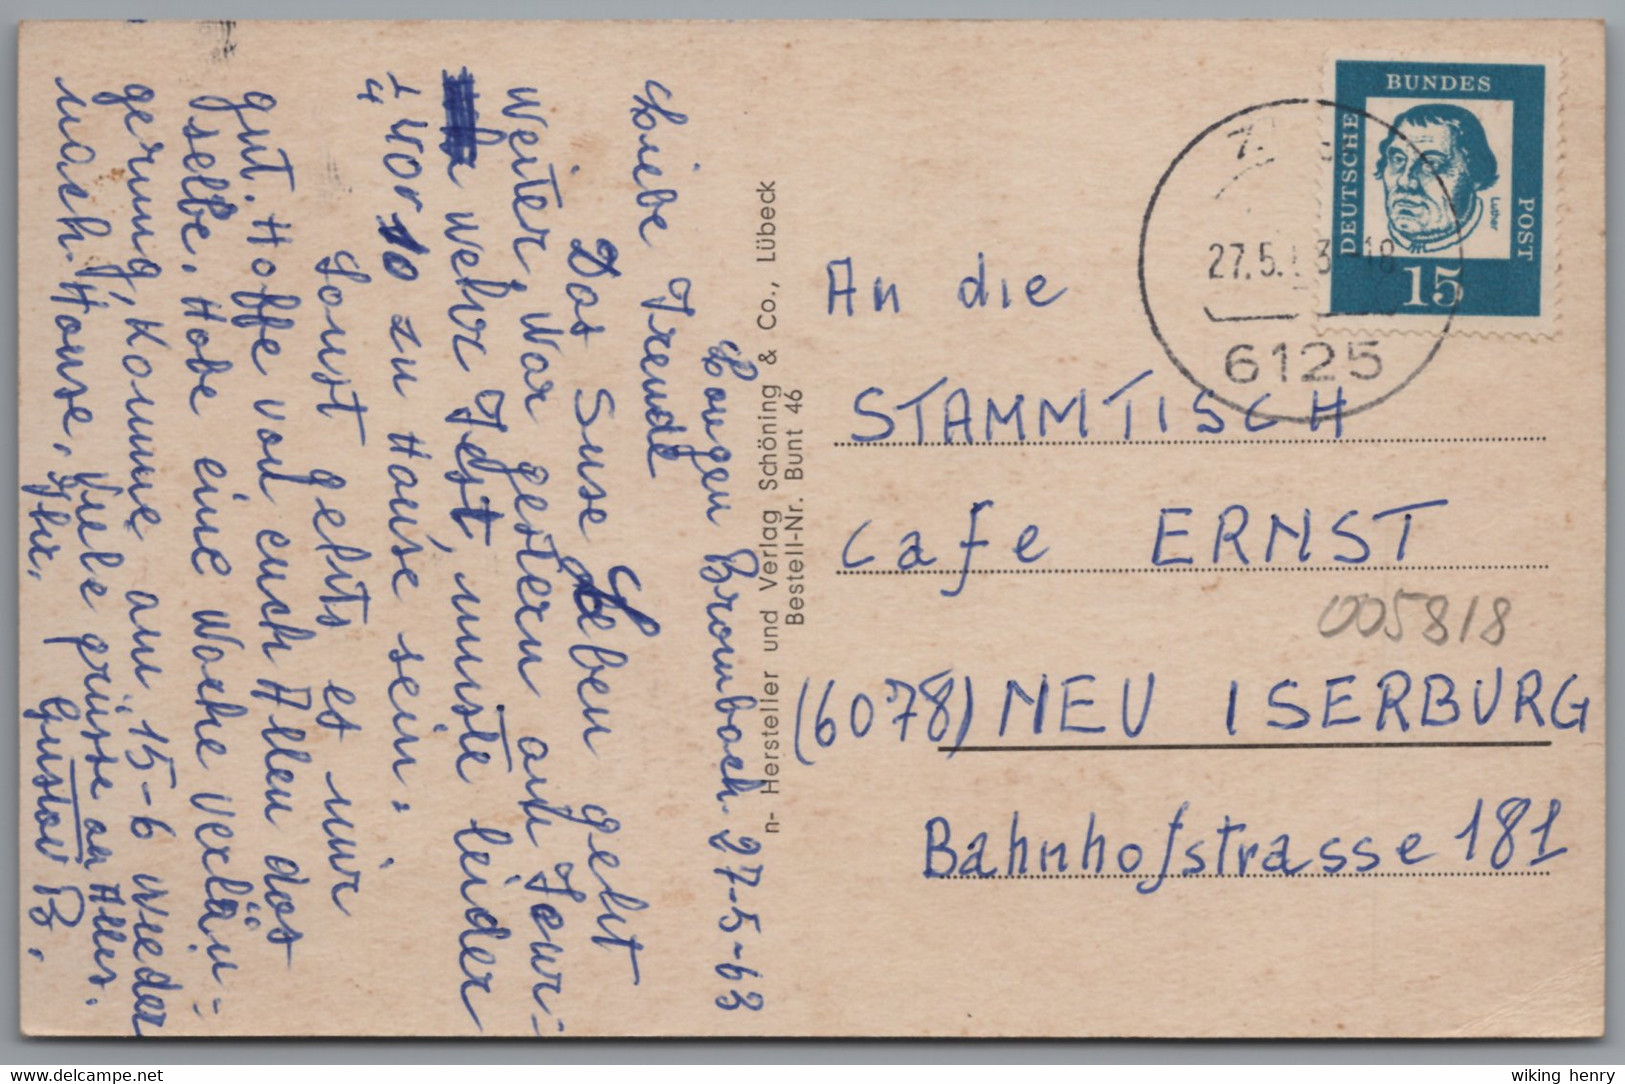 Langen Brombach 27-5-63
Liebe Freunde
Das Suse Leben geht
weiter, War gestern auf
wehr Fest, muste leider
1/4 vor 10 zu Hause sein.
Sonst gehts es mir
gut. Hoffe von euch Allen das
selbe. Habe eine Woche verlän=
gerung, Komme am 15-6 wieder
nach Hause. Viele grüsse an Alle.
Ihr. Gustav B.
n- Hersteller und Verlag Schöning & Co., Lübeck
Bestell-Nr. Bunt 46
DEUTSCHE BUNDES POST
Luther
15
27.5. 3 18
6125
An die
STAMMTISCH
Cafe ERNST
005818
(6078) NEU ISERBURG
Bahnhofstrasse 181
delcampe.net
wiking henry